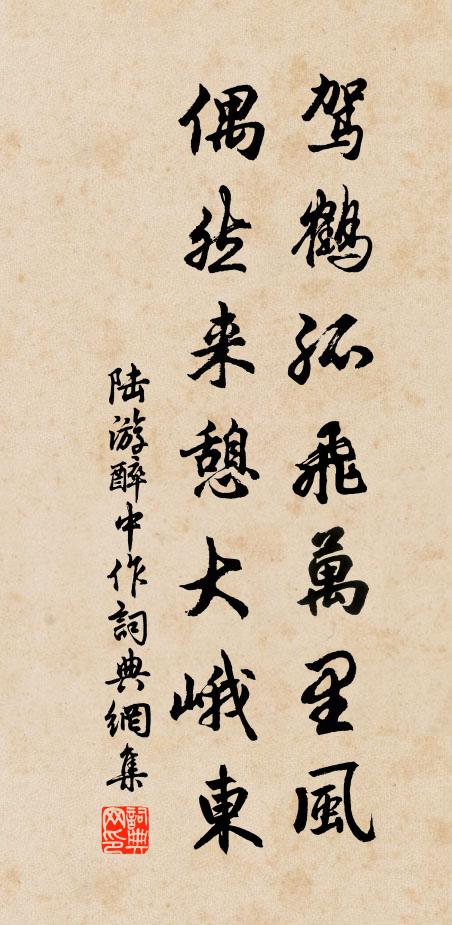 駕鶴孤飛萬里風
偶然来憩大峨東
陆游醉中作詞典網集
詞典网印